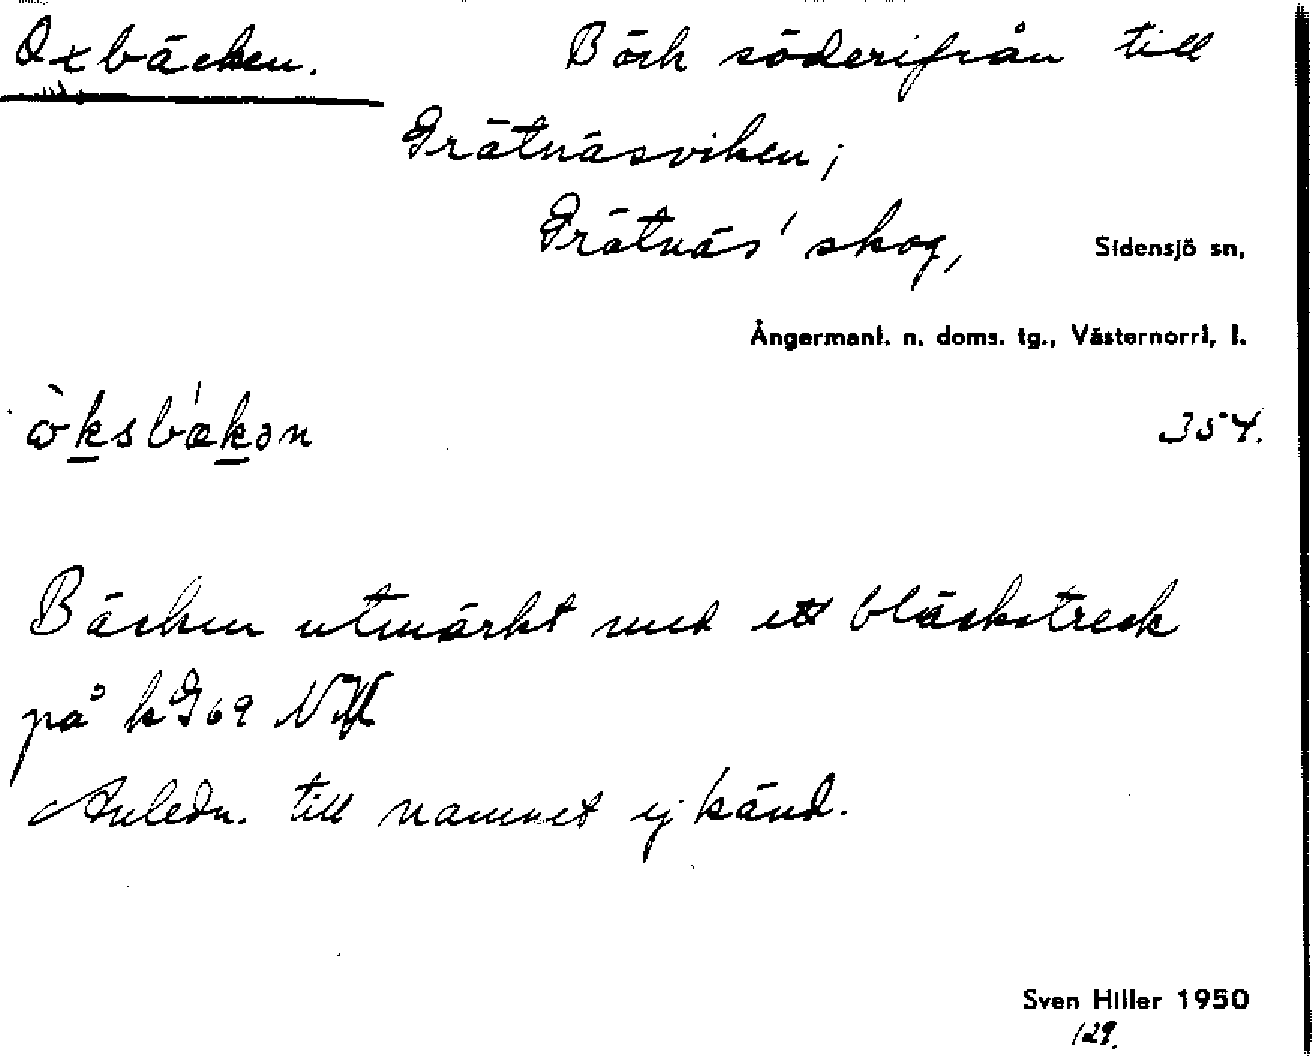 Oxbäcken. Bäck söderifrån till
Grätnäsviken;
Grätnäs' skog, Sidensjö sn,
Ångermanl. n. doms. tg., Västernorrl. l.
òksbækən 354.
Bäcken utmärkt med ett bläckstreck
på k
Anledn. till namnet ej känd.
Sven Hiller 1950
129.